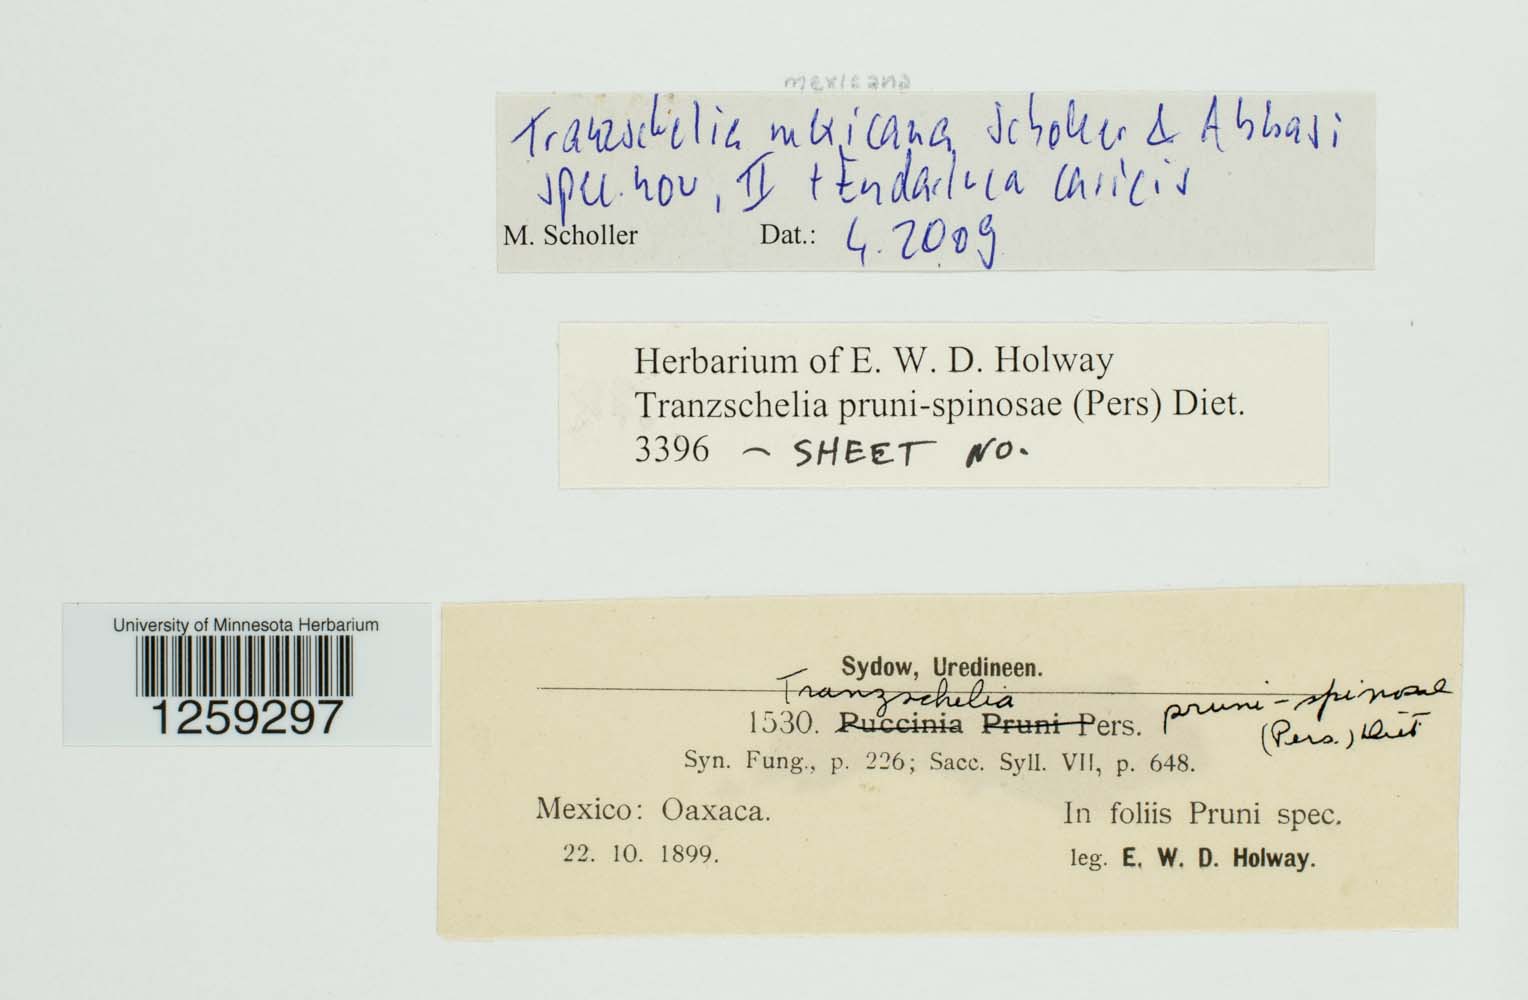 mexicana
Tranzschelia mexicana Scholler & Abbasi
spec. nov, II + Eudarluca caricis
M. Scholler Dat.: 4. 2009
Herbarium of E. W. D. Holway
Tranzschelia pruni-spinosae (Pers) Diet.
3396 – SHEET NO.
University of Minnesota Herbarium
1259297
Sydow, Uredineen.
Tranzschelia pruni-spinosae
1530. Puccinia Pruni Pers. (Pers.) Diet
Syn. Fung., p. 226; Sacc. Syll. VII, p. 648.
Mexico: Oaxaca. In foliis Pruni spec.
22. 10. 1899. leg. E. W. D. Holway.